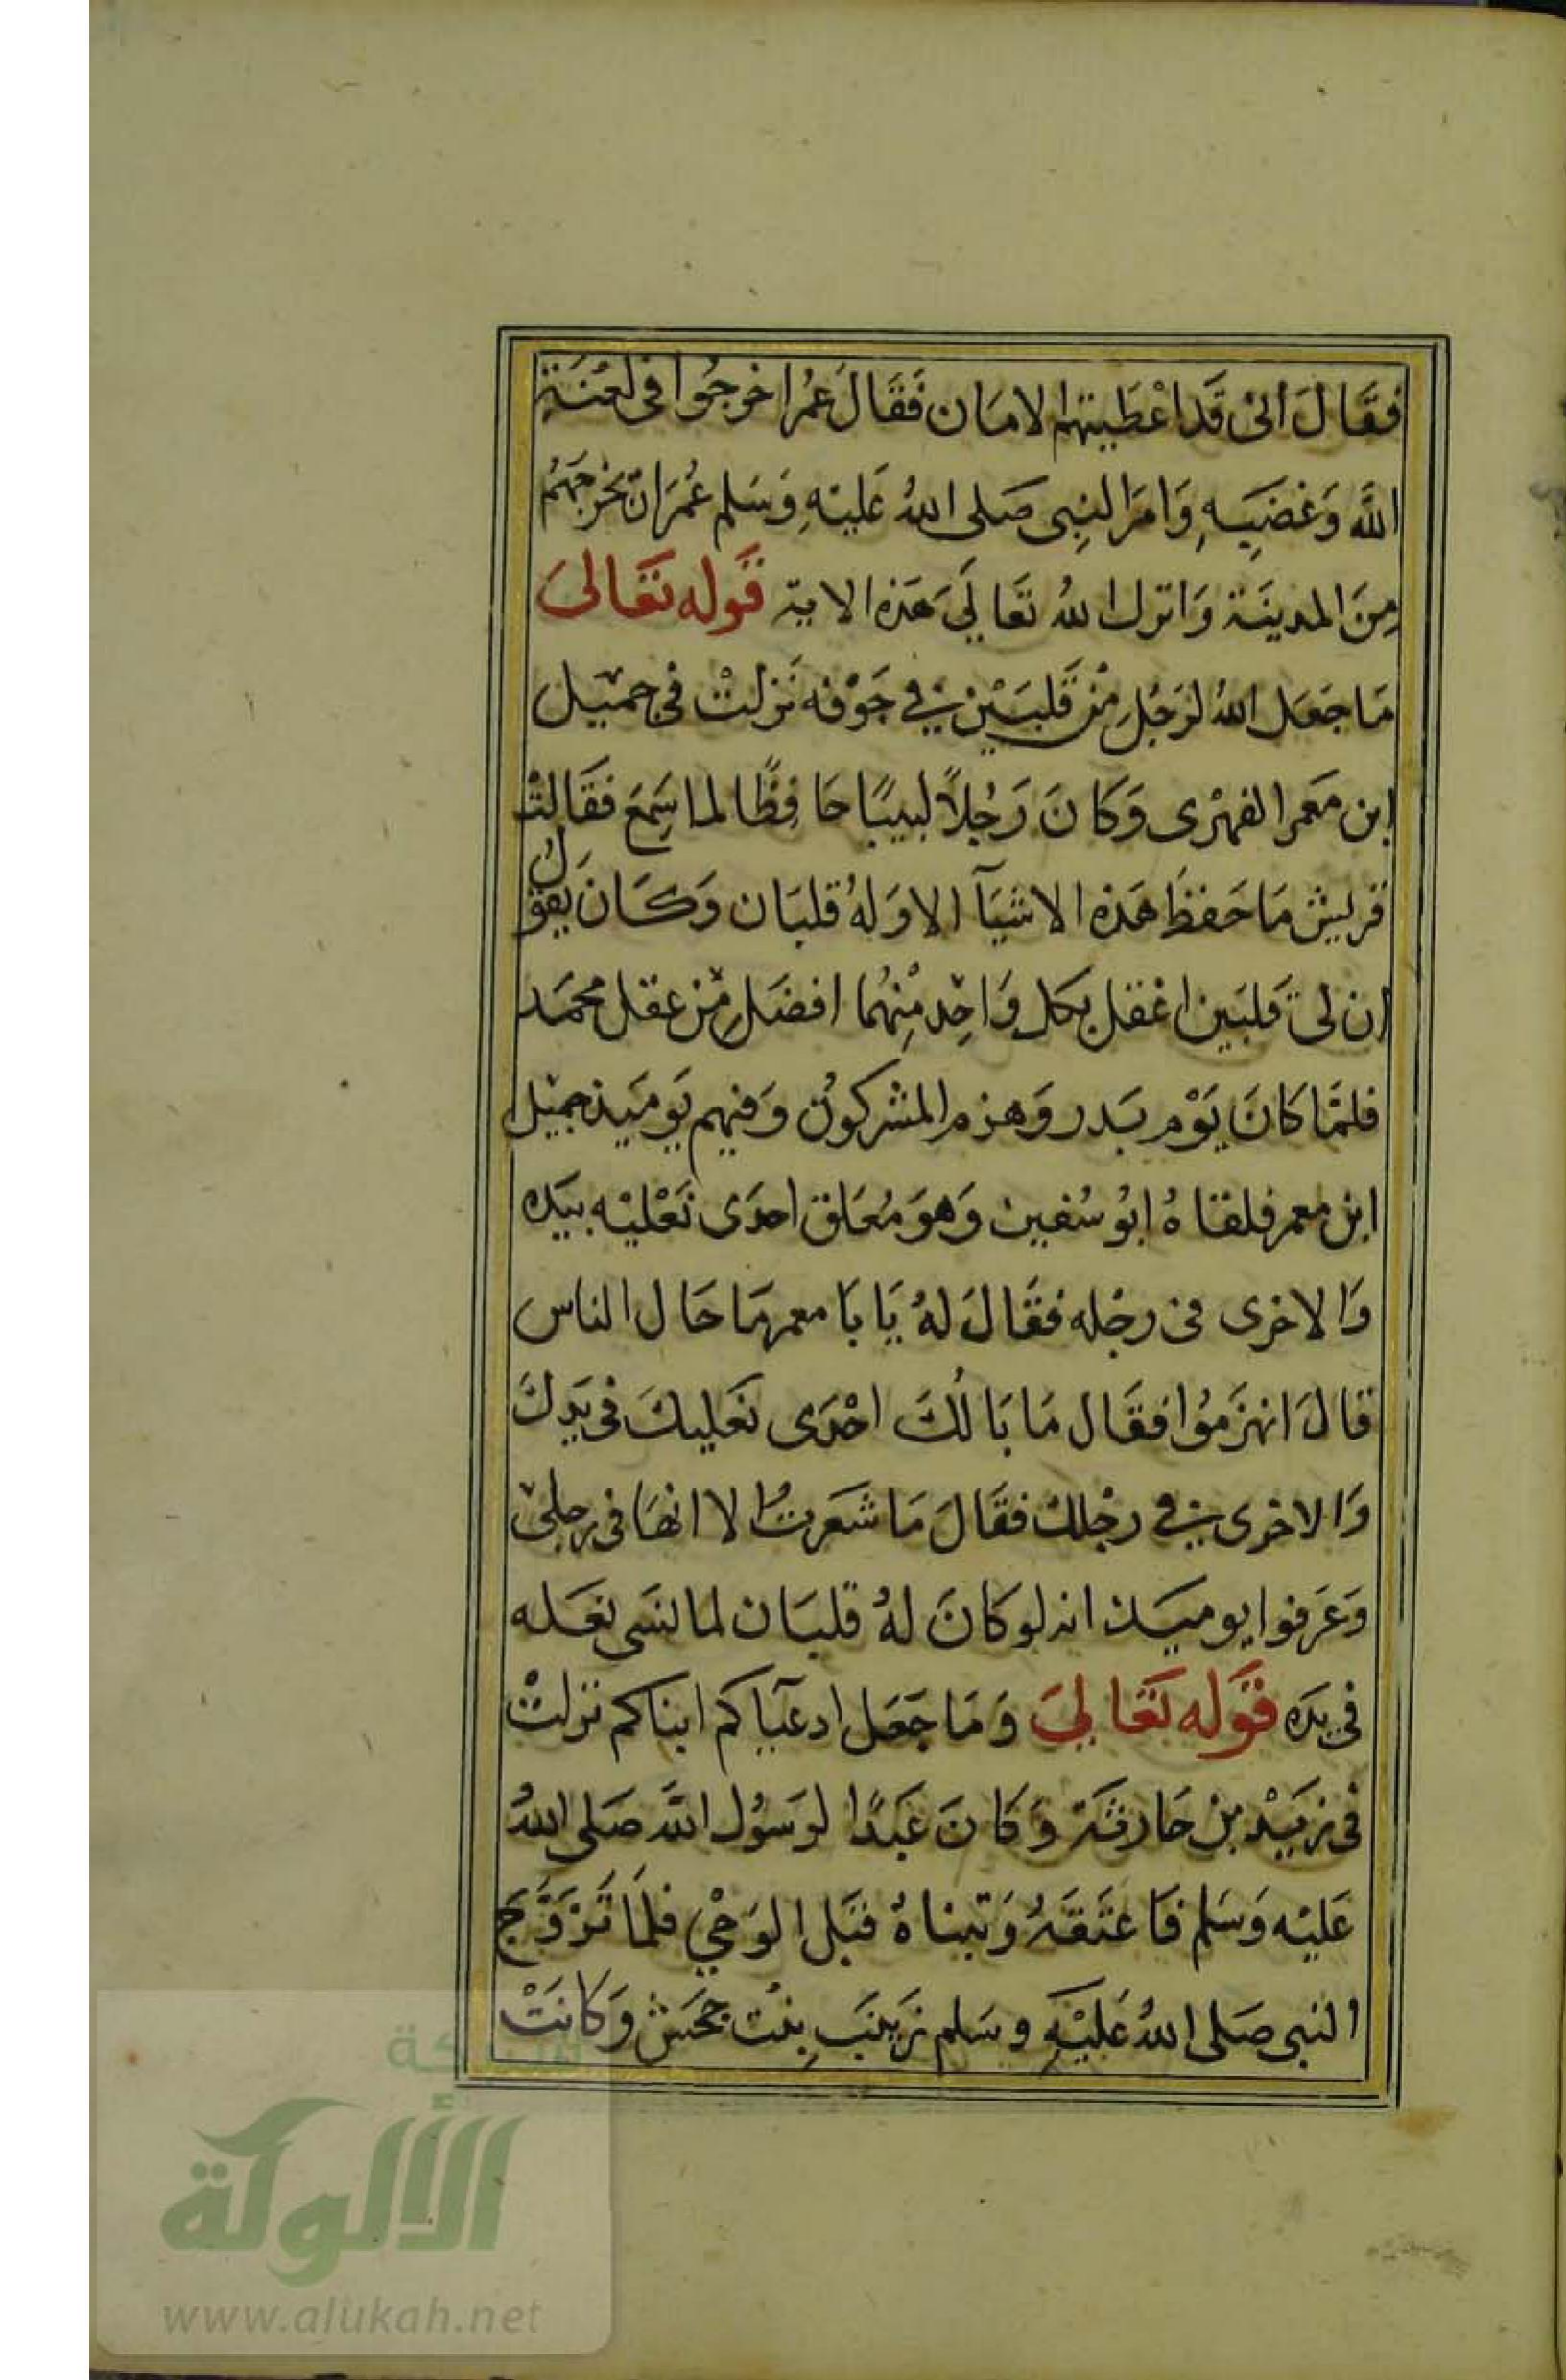 فقَالَ اني قَد اعْطَيتهم الامَان فَقَالَ عُمر اخرجُوا في لعْنَةِ
اللَّه وَغضَبِهِ وَامرَ النبِى صَلى اللهُ عَليْهِ وَسَلم عُمَرَ ان يخرجهُم
مِنَ المدينَة وَانزل اللهُ تعَالَى هَذه الايَة قَوله تعَالىَ
مَا جَعَل اللهُ لرَجُلِ مْن قَلبَيْن في جَوْفه نَزلتْ في جميل
ابن معَمر الفهرْى وَكَانَ رَجُلاً لبيبًا حَافِظًا لما سَمِعَ فقَالتْ
قريش مَا حَفظَ هَذه الاشيَآ الا وَلهُ قلبَان وَكَانَ يَقول
ان لى قَلبَين اعْقل بكل وَاحِد مْنِهُما افضَل مْن عقل محمَد
فلمَّا كَانَ يَوْم بَدر وَهزم المشركونُ وَفيهم يَوميَذ جميْل
ابن معمر فلقَاهُ ابُو سُفين وَهوَ مُعَلق احدَى نَعْليْه بيَده
وَالاخرى في رجْله فقَالَ لهُ يَا بَا معمر مَا حَال الناس
قالَ انهزَموُا فقَال مَا بَالُكَ احْدَى نَعَليكَ فى يَدِكَ
وَالاخرى في رجْلك فقَالَ مَا شعَرتُ الا انهَا فى رجلى
وَعَرفوا يوميَذ انه لو كَانَ لهُ قلبَان لما نسَى نعَله
فى يَده قَوله تَعَالىَ وَمَا جَعَل ادعيَآكم ابناكم نزلتْ
فى زيَدْ بن حَارثة وَكَانَ عَبدًا لرَسوُل اللَّه صَلى اللهُ
عَليْه وَسَلم فَاعتَقَهُ وَتبناهُ قبَل الوَحْي فلمَا تَزَوَّجَ
النبى صَلى اللهُ عَليْهِ وسَلم زيَنبَ بِنْت جَحَش وَكانَتْ
شبكة
الألوكة
www.alukah.net